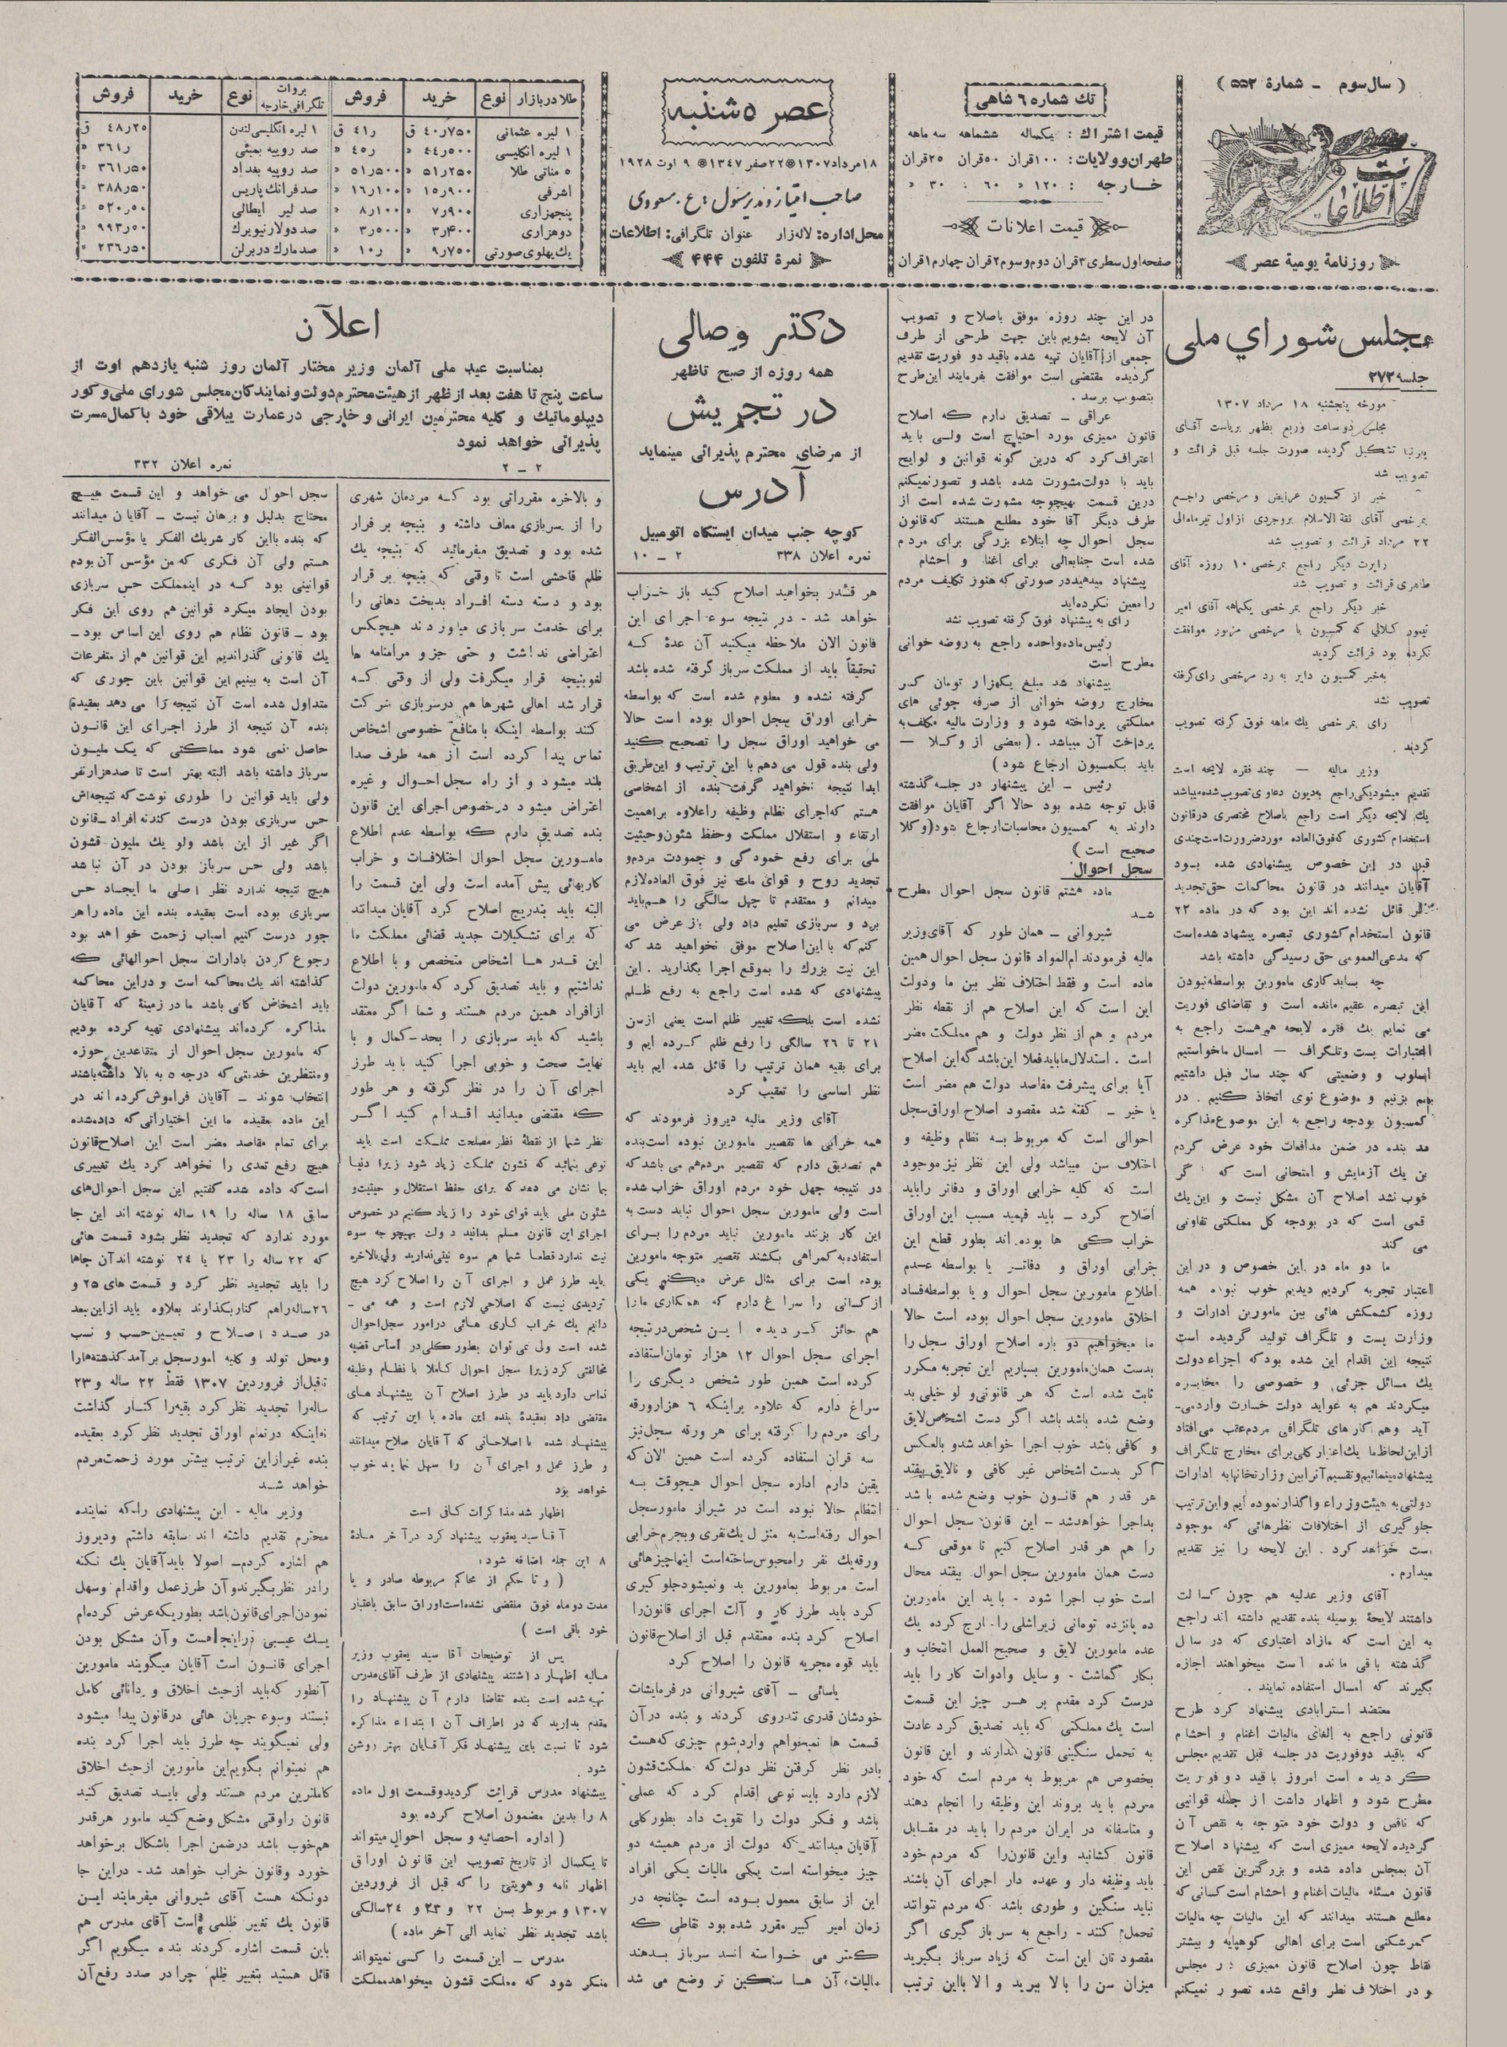 ( سال سوم - شمارهٔ ۵۵۲ )
اطلاعات
روزنامهٔ یومیهٔ عصر
تك شماره ۶ شاهی
قیمت اشتراك : یکساله ششماهه سه ماهه
طهران و ولایات : ۱۰۰ قران ۵۰ قران ۲۵ قران
خارجه : ۱۲۰ » ۶۰ : ۳۰ »
قیمت اعلانات
صفحه اول سطری ۳ قران دوم و سوم ۲ قران چهارم ۱ قران
عصر ۵ شنبه
۱۸ مرداد ۱۳۰۷ ۲۲ صفر ۱۳۴۷ ۹ اوت ۱۹۲۸
صاحب امتیاز و مدیر مسئول : ع . مسعودی
محل اداره : لاله زار عنوان تلگرافی : اطلاعات
نمرهٔ تلفون ۴۴۴
طلا در بازار نوع خرید فروش
۱ لیره عثمانی ۴۰ر۷۵۰ ق ۴۱ر ق
۱ لیره انگلیسی ۴۴ر۵۰۰ » ۴۵ر »
۵ مناتی طلا ۵۱ر۲۵۰ » ۵۱ر۵۰۰ »
اشرفی ۱۵ر۹۰۰ » ۱۶ر۱۰۰ »
پنجهزاری ۷ر۹۰۰ » ۸ر۱۰۰ »
دوهزاری ۳ر۴۰۰ » ۳ر۵۰۰ »
یك پهلوی صورتی ۹ر۷۵۰ » ۱۰ر »
بروات تلگرافی خارجه نوع خرید فروش
۱ لیره انگلیسی لندن ۴۸ر۲۵ ق
صد روپیه بمبئی ۳۶۱ر »
صد روپیه بغداد ۳۶۱ر۵۰ »
صد فرانك پاریس ۳۸۸ر۵۰ »
صد لیر ایطالی ۵۲۰ر۵۰ »
صد دولار نیویرك ۹۹۳ر۵۰ »
صد مارك در برلن ۲۳۶ر۵۰ »
مجلس شورای ملی
جلسه ۲۷۲
مورخه پنجشنبه ۱۸ مرداد ۱۳۰۷
مجلس دو ساعت و ربع بظهر بریاست آقای
پیرنیا تشکیل گردیده صورت جلسه قبل قرائت و
تصویب شد
خبر از کمسیون عرایض و مرخصی راجع
بمرخصی آقای ثقة الاسلام بروجردی از اول تیرماه الی
۲۲ مرداد قرائت و تصویب شد
راپرت دیگر راجع بمرخصی ۱۰ روزه آقای
طاهری قرائت و تصویب شد
خبر دیگر راجع بمرخصی یکماهه آقای امیر
تیمور کلالی که کمسیون با مرخصی مزبور موافقت
نکرده بود قرائت گردید
رای بمرخصی یك ماهه فوق گرفته تصویب
گردید .
وزیر مالیه — چند فقره لایحه است
تقدیم میشود یکی راجع بدیون دعاوی تصویب شده میباشد
یك لایحه دیگر است راجع باصلاح مختصری در قانون
استخدام کشوری که فوق العاده مورد ضرورت است چندی
قبل در این خصوص پیشنهادی شده بود
قانون استخدام کشوری تبصره پیشنهاد شده است
که مدعی العمومی حق رسیدگی داشته باشد
این تبصره عقیم مانده است و تقاضای فوریت
می نمایم یك فقره لایحه هم هست راجع به
اعتبارات پست و تلگراف — امسال ما خواستیم
اسلوب و وضعیتی که چند سال قبل داشتیم
بهم بزنیم و موضوع نوی اتخاذ کنیم . در
کمسیون بودجه راجع به این موضوع مذاکره
شد بنده در ضمن مدافعات خود عرض کردم
خوب نشد اصلاح آن مشکل نیست و این یك
قمی است که در بودجه کل مملکتی تفاوتی
می کند
ما دو ماه در این خصوص و در این
اعتبار تجربه کردیم دیدیم خوب نبود همه
روزه کشمکش هائی بین مامورین ادارات و
وزارت پست و تلگراف تولید گردیده است
نتیجه این اقدام این شده بود که اجزاء دولت
یك مسائل جزئی و خصوصی را مخابره
میکردند هم به عواید دولت خسارت وارد می-
آید و هم کار های تلگرافی مردم عقب می افتاد
از این لحاظ ما یك اعتبار کلی برای مخارج تلگراف
پیشنهاد مینمائیم و تقسیم آنرا بین وزارتخانها به ادارات
دولتی به هیئت وزراء واگذار نموده ایم و این ترتیب
جلوگیری از اختلافات نظرهائی که موجود
است خواهد کرد . این لایحه را نیز تقدیم
میدارم .
آقای وزیر عدلیه هم چون کسالت
داشتند لایحهٔ بوسیله بنده تقدیم داشته اند راجع
به این است که مازاد اعتباری که در سال
گذشته باقی مانده است میخواهند اجازه
بگیرند که امسال استفاده نمایند .
معتضد استرابادی پیشنهاد کرد طرح
قانونی راجع به الغای مالیات اغنام و احشام
که باقید دو فوریت در جلسه قبل تقدیم مجلس
گردیده است امروز با قید دو فوریت
مطرح شود و اظهار داشت از جمله قوانینی
که ناقص و دولت خود متوجه به نقص آن
گردیده لایحه ممیزی است که پیشنهاد اصلاح
آن بمجلس داده شده و بزرگترین نقص این
قانون مسئله مالیات اغنام و احشام است کسانی که
مطلع هستند میدانند که این مالیات چه مالیات
کمر شکنی است برای اهالی کوهپایه و بیشتر
نقاط چون اصلاح قانون ممیزی در مجلس
و در اختلاف نظر واقع شده تصور نمیکنم
در این چند روزه موفق باصلاح و تصویب
آن لایحه بشویم باین جهت طرحی از طرف
جمعی از آقایان تهیه شده باقید دو فوریت تقدیم
گردیده مقتضی است موافقت بفرمایند این طرح
بتصویب برسد .
عراقی - تصدیق دارم که اصلاح
قانون ممیزی مورد احتیاج است ولی باید
اعتراف کرد که درین گونه قوانین و لوایح
باید با دولت مشورت شده باشد و تصور نمیکنم
درین قسمت بهیچوجه مشورت شده است از
طرف دیگر آقا خود مطلع هستند که قانون
سجل احوال چه ابتلاء بزرگی برای مردم
شده است جنابعالی برای اغنام و احشام
پیشنهاد میدهید در صورتی که هنوز تکلیف مردم
را معین نکرده اید
رای به پیشنهاد فوق گرفته تصویب نشد
رئیس ماده واحده راجع به روضه خوانی
مطرح است
پیشنهاد شد مبلغ یکهزار تومان کسر
مخارج روضه خوانی از صرفه جوئی های
مملکتی پرداخته شود و وزارت مالیه مکلف به
پرداخت آن میباشد . ( بعضی از وکلا —
باید بکمسیون ارجاع شود )
رئیس - این پیشنهاد در جلسه گذشته
قابل توجه شده بود حالا اگر آقایان موافقت
دارند به کمسیون محاسبات ارجاع شود ( وکلا
صحیح است )
سجل احوال
ماده هشتم قانون سجل احوال مطرح
شد
شیروانی - همان طور که آقای وزیر
مالیه فرمودند ام المواد قانون سجل احوال همین
ماده است و فقط اختلاف نظر بین ما و دولت
این است که این اصلاح هم از نقطه نظر
مردم و هم از نظر دولت و هم مملکت مضر
است . استدلال ما باید فعلا این باشد که این اصلاح
آیا برای پیشرفت مقاصد دولت هم مضر است
یا خیر - گفته شد مقصود اصلاح اوراق سجل
احوالی است که مربوط به نظام وظیفه و
اختلاف سن میباشد ولی این نظر نیز موجود
است که کلیه خرابی اوراق و دفاتر را باید
اصلاح کرد - باید فهمید مسبب این اوراق
خراب کی ها بوده اند بطور قطع این
خرابی اوراق و دفاتر یا بواسطه عدم
اطلاع مامورین سجل احوال و یا بواسطه فساد
اخلاق مامورین سجل احوال بوده است حالا
ما میخواهیم دو باره اصلاح اوراق سجل را
بدست همان مامورین بسپاریم این تجربه مکرر
ثابت شده است که هر قانونی و لو خیلی بد
وضع شده باشد باشد اگر دست اشخاص لایق
و کافی باشد خوب اجرا خواهد شد و بالعکس
اگر بدست اشخاص غیر کافی و نالایق بیفتد
هر قدر هم قانون خوب وضع شده باشد
بد اجرا خواهد شد - این قانون سجل احوال
را هم هر قدر اصلاح کنیم تا موقعی که
دست همان مامورین سجل احوال بیفتد محال
است خوب اجرا شود - باید این مامورین
ده پانزده تومانی زیر اشلی را خارج کرده یك
عده مامورین لایق و صحیح العمل انتخاب و
بکار گماشت - و سایل و ادوات کار را باید
درست کرد مقدم بر هر چیز این قسمت
است یك مملکتی که باید تصدیق کرد عادت
به تحمل سنگینی قانون ندارند و این قانون
بخصوص هم مربوط به مردم است که خود
مردم باید بروند این وظیفه را انجام دهند
و متاسفانه در ایران مردم را باید در مقابل
قانون کشانید و این قانون را که مردم خود
باید وظیفه دار و عهده دار اجرای آن باشند
نباید سنگین و طوری باشد که مردم نتوانند
تحمل کنند - راجع به سرباز گیری اگر
مقصودتان این است که زیاد سرباز بگیرید
میزان سن را بالا ببرید و الا با این ترتیب
دکتر وصالی
همه روزه از صبح تا ظهر
در تجریش
از مرضای محترم پذیرائی مینماید
آدرس
کوچه جنب میدان ایستگاه اتومبیل
نمره اعلان ۳۳۸ ۲ - ۱۰
هر قدر بخواهید اصلاح کنید باز خراب
خواهد شد - در نتیجه سوء اجرای این
قانون الان ملاحظه میکنید آن عدهٔ که
تحقیقاً باید از مملکت سرباز گرفته شده باشد
گرفته نشده و معلوم شده است که بواسطه
خرابی اوراق سجل احوال بوده است حالا
می خواهید اوراق سجل را تصحیح کنید
ولی بنده قول می دهم با این ترتیب و این طریق
ابدا نتیجه نخواهید گرفت بنده از اشخاصی
هستم که اجرای نظام وظیفه را علاوه بر اهمیت
ارتقاء و استقلال مملکت و حفظ شئون و حیثیت
ملی برای رفع خمودگی و جمودت مردم و
تجدید روح و قوای ملت نیز فوق العاده لازم
میدانم و معتقدم تا چهل سالگی را هم باید
برد و سربازی تعلیم داد ولی باز عرض می
کنم که با این اصلاح موفق نخواهید شد که
این نیت بزرك را بموقع اجرا بگذارید . این
پیشنهادی که شده است راجع به رفع ظلم
نشده است بلکه تغییر ظلم است یعنی از سن
۲۱ تا ۲۶ سالگی را رفع ظلم کرده ایم و
برای بقیه همان ترتیب را قائل شده ایم باید
نظر اساسی را تعقیب کرد
آقای وزیر مالیه دیروز فرمودند که
همه خرابی ها تقصیر مامورین نبوده است بنده
هم تصدیق دارم که تقصیر مردم هم می باشد که
در نتیجه جهل خود مردم اوراق خراب شده
است ولی مامورین سجل احوال نباید دست به
این کار بزنند مامورین نباید مردم را برای
استفاده به گمراهی بکشند تقصیر متوجه مامورین
بوده است برای مثال عرض میکنم یکی
از کسانی را سراغ دارم که همکاری ما را
هم حائز گردیده این شخص در نتیجه
اجرای سجل احوال ۱۲ هزار تومان استفاده
کرده است همین طور شخص دیگری را
سراغ دارم که علاوه بر اینکه ۶ هزار ورقه
رای مردم را گرفته برای هر ورقه سجل نیز
سه قران استفاده کرده است همین الان که
یقین دارم اداره سجل احوال هیچوقت به
انتظام حالا نبوده است در شیراز مامور سجل
احوال رفته است به منزل یك نفری و بجرم خرابی
ورقه یك نفر را محبوس ساخته است اینها چیزهائی
است مربوط بمامورین بد و نمیشود جلوگیری
کرد باید طرز کار و آلت اجرای قانون را
اصلاح کرد بنده معتقدم قبل از اصلاح قانون
باید قوه مجریه قانون را اصلاح کرد
یاسائی - آقای شیروانی در فرمایشات
خودشان قدری تندروی کردند و بنده در آن
قسمت ها نمیخواهم وارد شوم چیزی که هست
با در نظر گرفتن نظر دولت که مملکت قشون
لازم دارد باید نوعی اقدام کرد که عملی
باشد و فکر دولت را تقویت داد بطور کلی
آقایان میدانند که دولت از مردم همیشه دو
چیز میخواسته است یکی مالیات یکی افراد
این از سابق معمول بوده است چنانچه در
زمان امیر کبیر مقرر شده بود نقاطی که
کمتر می خواسته اند سرباز بدهند
مالیات آن ها سنگین تر وضع می شد
اعلان
بمناسبت عید ملی آلمان وزیر مختار آلمان روز شنبه یازدهم اوت از
ساعت پنج تا هفت بعد از ظهر از هیئت محترم دولت و نمایندگان مجلس شورای ملی و کور
دیپلوماتیك و کلیه محترمین ایرانی و خارجی در عمارت ییلاقی خود با کمال مسرت
پذیرائی خواهد نمود
۲ - ۲ نمره اعلان ۳۳۲
و بالاخره مقرراتی بود که مردمان شهری
را از سربازی معاف داشته و بنیچه بر قرار
شده بود و تصدیق میفرمائید که بنیچه یك
ظلم فاحشی است تا وقتی که بنیچه بر قرار
بود و دسته دسته افراد بدبخت دهاتی را
برای خدمت سربازی میاوردند هیچکس
اعتراضی نداشت و حتی جزو مرامنامه ها
لغو بنیچه قرار میگرفت ولی از وقتی که
قرار شد اهالی شهرها هم در سربازی شرکت
کنند بواسطه اینکه با منافع خصوصی اشخاص
تماس پیدا کرده است از همه طرف صدا
بلند میشود و از راه سجل احوال و غیره
اعتراض میشود در خصوص اجرای این قانون
بنده تصدیق دارم که بواسطه عدم اطلاع
مامورین سجل احوال اختلافات و خراب
کاریهائی پیش آمده است ولی این قسمت را
البته باید بتدریج اصلاح کرد آقایان میدانند
که برای تشکیلات جدید قضائی مملکت ما
این قدر ها اشخاص متخصص و با اطلاع
نداشتیم و باید تصدیق کرد که مامورین دولت
از افراد همین مردم هستند و شما اگر معتقد
باشید که باید سربازی را بحد کمال و با
نهایت صحت و خوبی اجرا کنید باید طرز
اجرای آن را در نظر گرفته و هر طور
که مقتضی میدانید اقدام کنید اگر
نظر شما از نقطهٔ نظر مصلحت مملکت است باید
نوعی بنمائید که قشون مملکت زیاد شود زیرا دنیا
بما نشان می دهد که برای حفظ استقلال و حیثیت و
شئون ملی باید قوای خود را زیاد کنیم در خصوص
اجرای این قانون مسلم بدانید دولت بهیچوجه سوء
نیت ندارد قطعا شما هم سوء نیتی ندارید ولی بالاخره
باید طرز عمل و اجرای آن را اصلاح کرد هیچ
تردیدی نیست که اصلاحی لازم است و همه می-
دانیم یك خراب کاری هائی در امور سجل احوال
شده است ولی نمی توان بطور کلی در اساس قضیه
مخالفتی کرد زیرا سجل احوال کاملا با نظام وظیفه
تماس دارد باید در طرز اصلاح آن پیشنهاد های
مقتضی داد بعقیدهٔ بنده این ماده با این ترتیب که
پیشنهاد شده با اصلاحاتی که آقایان صلاح میدانند
و طرز عمل و اجرای آن را سهل نماید خوب
خواهد بود
اظهار شد مذاکرات کافی است
آقا سید یعقوب پیشنهاد کرد در آخر مادهٔ
۸ این جمله اضافه شود :
( و تا حکم از محاکم مربوطه صادر و یا
مدت دو ماه فوق منقضی نشده است اوراق سابق باعتبار
خود باقی است )
پس از توضیحات آقا سید یعقوب وزیر
مالیه اظهار داشتند پیشنهادی از طرف آقای مدرس
تهیه شده است بنده تقاضا دارم آن پیشنهاد را
مقدم بدارید که در اطراف آن ابتداء مذاکره
شود تا نسبت باین پیشنهاد فکر آقایان بهتر روشن
شود
پیشنهاد مدرس قرائت گردید و قسمت اول ماده
۸ را بدین مضمون اصلاح کرده بود
( اداره احصائیه و سجل احوال میتواند
تا یکسال از تاریخ تصویب این قانون اوراق
اظهار نامه و هویتی را که قبل از فروردین
۱۳۰۷ و مربوط بسن ۲۲ و ۲۳ و ۲۴ سالگی
باشد تجدید نظر نماید الی آخر ماده )
مدرس - این قسمت را کسی نمیتواند
منکر شود که مملکت قشون میخواهد مملکت
سجل احوال می خواهد و این قسمت هیچ
محتاج بدلیل و برهان نیست - آقایان میدانند
که بنده با این کار شریك الفکر یا مؤسس الفکر
هستم ولی آن فکری که من مؤسس آن بودم
قوانینی بود که در اینمملکت حس سربازی
بودن ایجاد میکرد قوانین هم روی این فکر
بود - قانون نظام هم روی این اساس بود -
یك قانونی گذراندیم این قوانین هم از متفرعات
آن است به بینیم این قوانین باین جوری که
متداول شده است آن نتیجه را می دهد بعقیدهٔ
بنده آن نتیجه از طرز اجرای این قانون
حاصل نمی شود مملکتی که یك ملیون
سرباز داشته باشد البته بهتر است تا صد هزار نفر
ولی باید قوانین را طوری نوشت که نتیجه اش
حس سربازی بودن درست کند نه افراد - قانون
اگر غیر از این باشد ولو یك ملیون قشون
باشد ولی حس سرباز بودن در آن نباشد
هیچ نتیجه ندارد نظر اصلی ما ایجاد حس
سربازی بوده است بعقیده بنده این ماده را هر
جور درست کنیم اسباب زحمت خواهد بود
رجوع کردن بادارات سجل احوالهائی که
گذاشته اند یك محاکمه است و در این محاکمه
باید اشخاص کافی باشد ما در زمینهٔ که آقایان
مذاکره کرده اند پیشنهادی تهیه کرده بودیم
که مامورین سجل احوال از متقاعدین حوزه
و منتظرین خدمتی که درجه ۵ به بالا داشته باشند
انتخاب شوند - آقایان فراموش کرده اند در
این ماده بعقیده ما این اختیاراتی که داده شده
برای تمام مقاصد مضر است این اصلاح قانون
هیچ رفع تعدی را نخواهد کرد یك تغییری
است که داده شده گفتیم این سجل احوال های
سابق ۱۸ ساله را ۱۹ ساله نوشته اند این جا
مورد ندارد که تجدید نظر بشود قسمت هائی
که ۲۲ ساله را ۲۳ یا ۲۴ نوشته اند آن جاها
را باید تجدید نظر کرد و قسمت های ۲۵ و
۲۶ ساله را هم کنار بگذارند بعلاوه باید از این بعد
در صدد اصلاح و تعیین حسب و نسب
و محل تولد و کلیه امور سجل برآمد گذشته ها را
قبل از فروردین ۱۳۰۷ فقط ۲۲ ساله و ۲۳
ساله را تجدید نظر کرد بقیه را کنار گذاشت
نه اینکه در تمام اوراق تجدید نظر کرد بعقیده
بنده غیر از این ترتیب بیشتر مورد زحمت مردم
خواهد شد
وزیر مالیه - این پیشنهادی را که نماینده
محترم تقدیم داشته اند سابقه داشتم و دیروز
هم اشاره کردم - اصولا باید آقایان یك نکته
را در نظر بگیرند و آن طرز عمل و اقدام و سهل
نمودن اجرای قانون باشد بطوریکه عرض کرده ام
یك عیبی در اینجا هست و آن مشکل بودن
اجرای قانون است آقایان میگویند مامورین
آنطور که باید از حیث اخلاق و دانائی کامل
نیستند و سوء جریان هائی در قانون پیدا میشود
ولی نمیگویند چه طرز باید اجرا کرد بنده
هم نمیتوانم بگویم این مامورین از حیث اخلاق
کاملترین مردم هستند ولی باید تصدیق کنید
قانون را وقتی مشکل وضع کنید مامور هر قدر
هم خوب باشد در ضمن اجرا باشکال بر خواهد
خورد و قانون خراب خواهد شد - در این جا
دو نکته هست آقای شیروانی میفرمایند این
قانون یك تغییر ظلمی است آقای مدرس هم
باین قسمت اشاره کردند بنده میگویم اگر
قائل هستید بتغییر ظلم چرا در صدد رفع آن